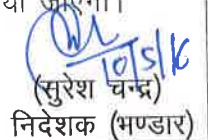 या जाएगा।
10/5/16
(सुरेश चन्द्र)
निदेशक (भण्डार)